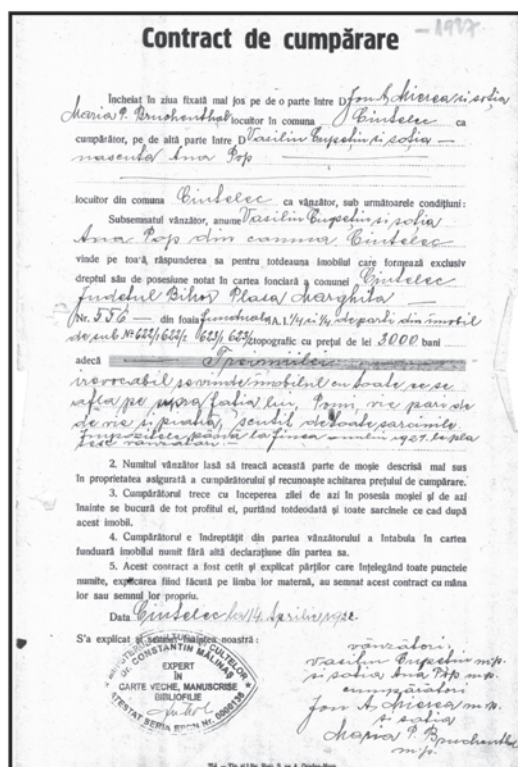 Contract de cumpărare
Încheiat în ziua fixată mai jos pe de o parte între D Jon A. Mierea si soția
Maria P. Bruchenthal locuitor în comuna Ciutelec ca
cumpărător, pe de altă parte între D Vasiliu Cupețiu si soția —
nascuta Ana Pop
locuitor din comuna Ciutelec ca vânzător, sub următoarele condițiuni:
Subsemnatul vânzător, anume Vasiliu Cupețiu si soția
Ana Pop din comuna Ciutelec
vinde pe toată, răspunderea sa pentru totdeauna imobilul care formează exclusiv
dreptul său de posesiune notat în cartea fonciară a comunei Ciutelec
Judetul Bihor Plasa Marghita
Nr. 556 — din foaia A. I. 1/4 si 1/4 de parti din imobil
de sub No 622/1 622/2 623/1 623/2 topografic cu prețul de lei 3000 bani
adecă Treimilei
irevocabil se vinde imobilul cu toate ce se
afla pe fatia lui, Pomi, vie pari de
de vie si scutit de toate sarcinile
Impozitele pana la finea anului
vânzători —
2. Numitul vânzător lasă să treacă această parte de moșie descrisă mai sus
în proprietatea asigurată a cumpărătorului și recunoaște achitarea prețului de cumpărare.
3. Cumpărătorul trece cu începerea zilei de azi în posesia moșiei și de azi
înainte se bucură de tot profitul ei, purtând totdeodată și toate sarcinele ce cad după
acest imobil.
4. Cumpărătorul e îndreptățit din partea vânzătorului a întabula în cartea
funduară imobilul numit fără altă declarațiune din partea sa.
5. Acest contract a fost cetit și explicat părților care înțelegând toate punctele
numite, explicarea fiind făcută pe limba lor maternă, au semnat acest contract cu mâna
lor sau semnul lor propriu.
Data Ciutelec la 14 Aprilie
S'a explicat și semnat înaintea noastră:
MINISTERUL CULTURII ȘI CULTELOR
Dr. CONSTANTIN MĂLINAȘ
EXPERT
ÎN
CARTE VECHE, MANUSCRISE
BIBLIOFILIE
ATESTAT SERIA EBON Nr. 0000136
vânzători,
Vasiliu Cupețiu m.p.
si soția Ana Pop m.p.
cumpăratori
Jon A. Mierea m.p.
si soția
Maria P. Bruchenthal
m.p.